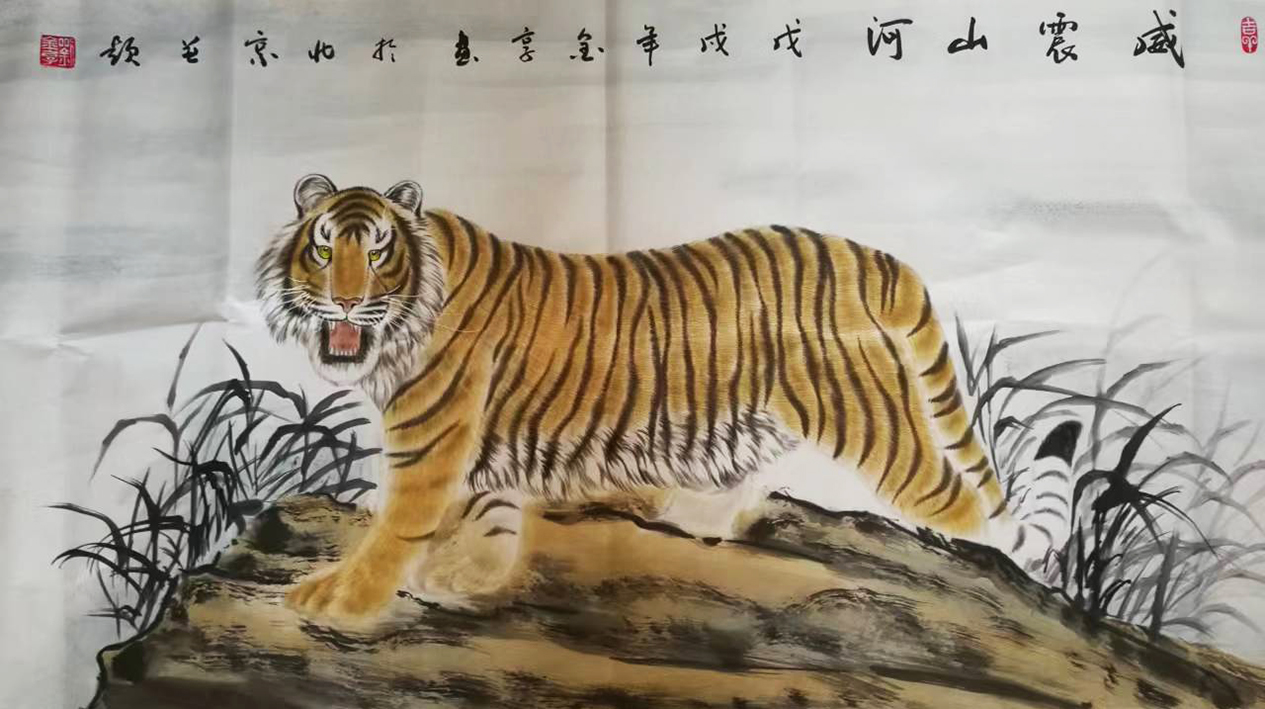 威震山河 戊戌年金亭画於北京並题